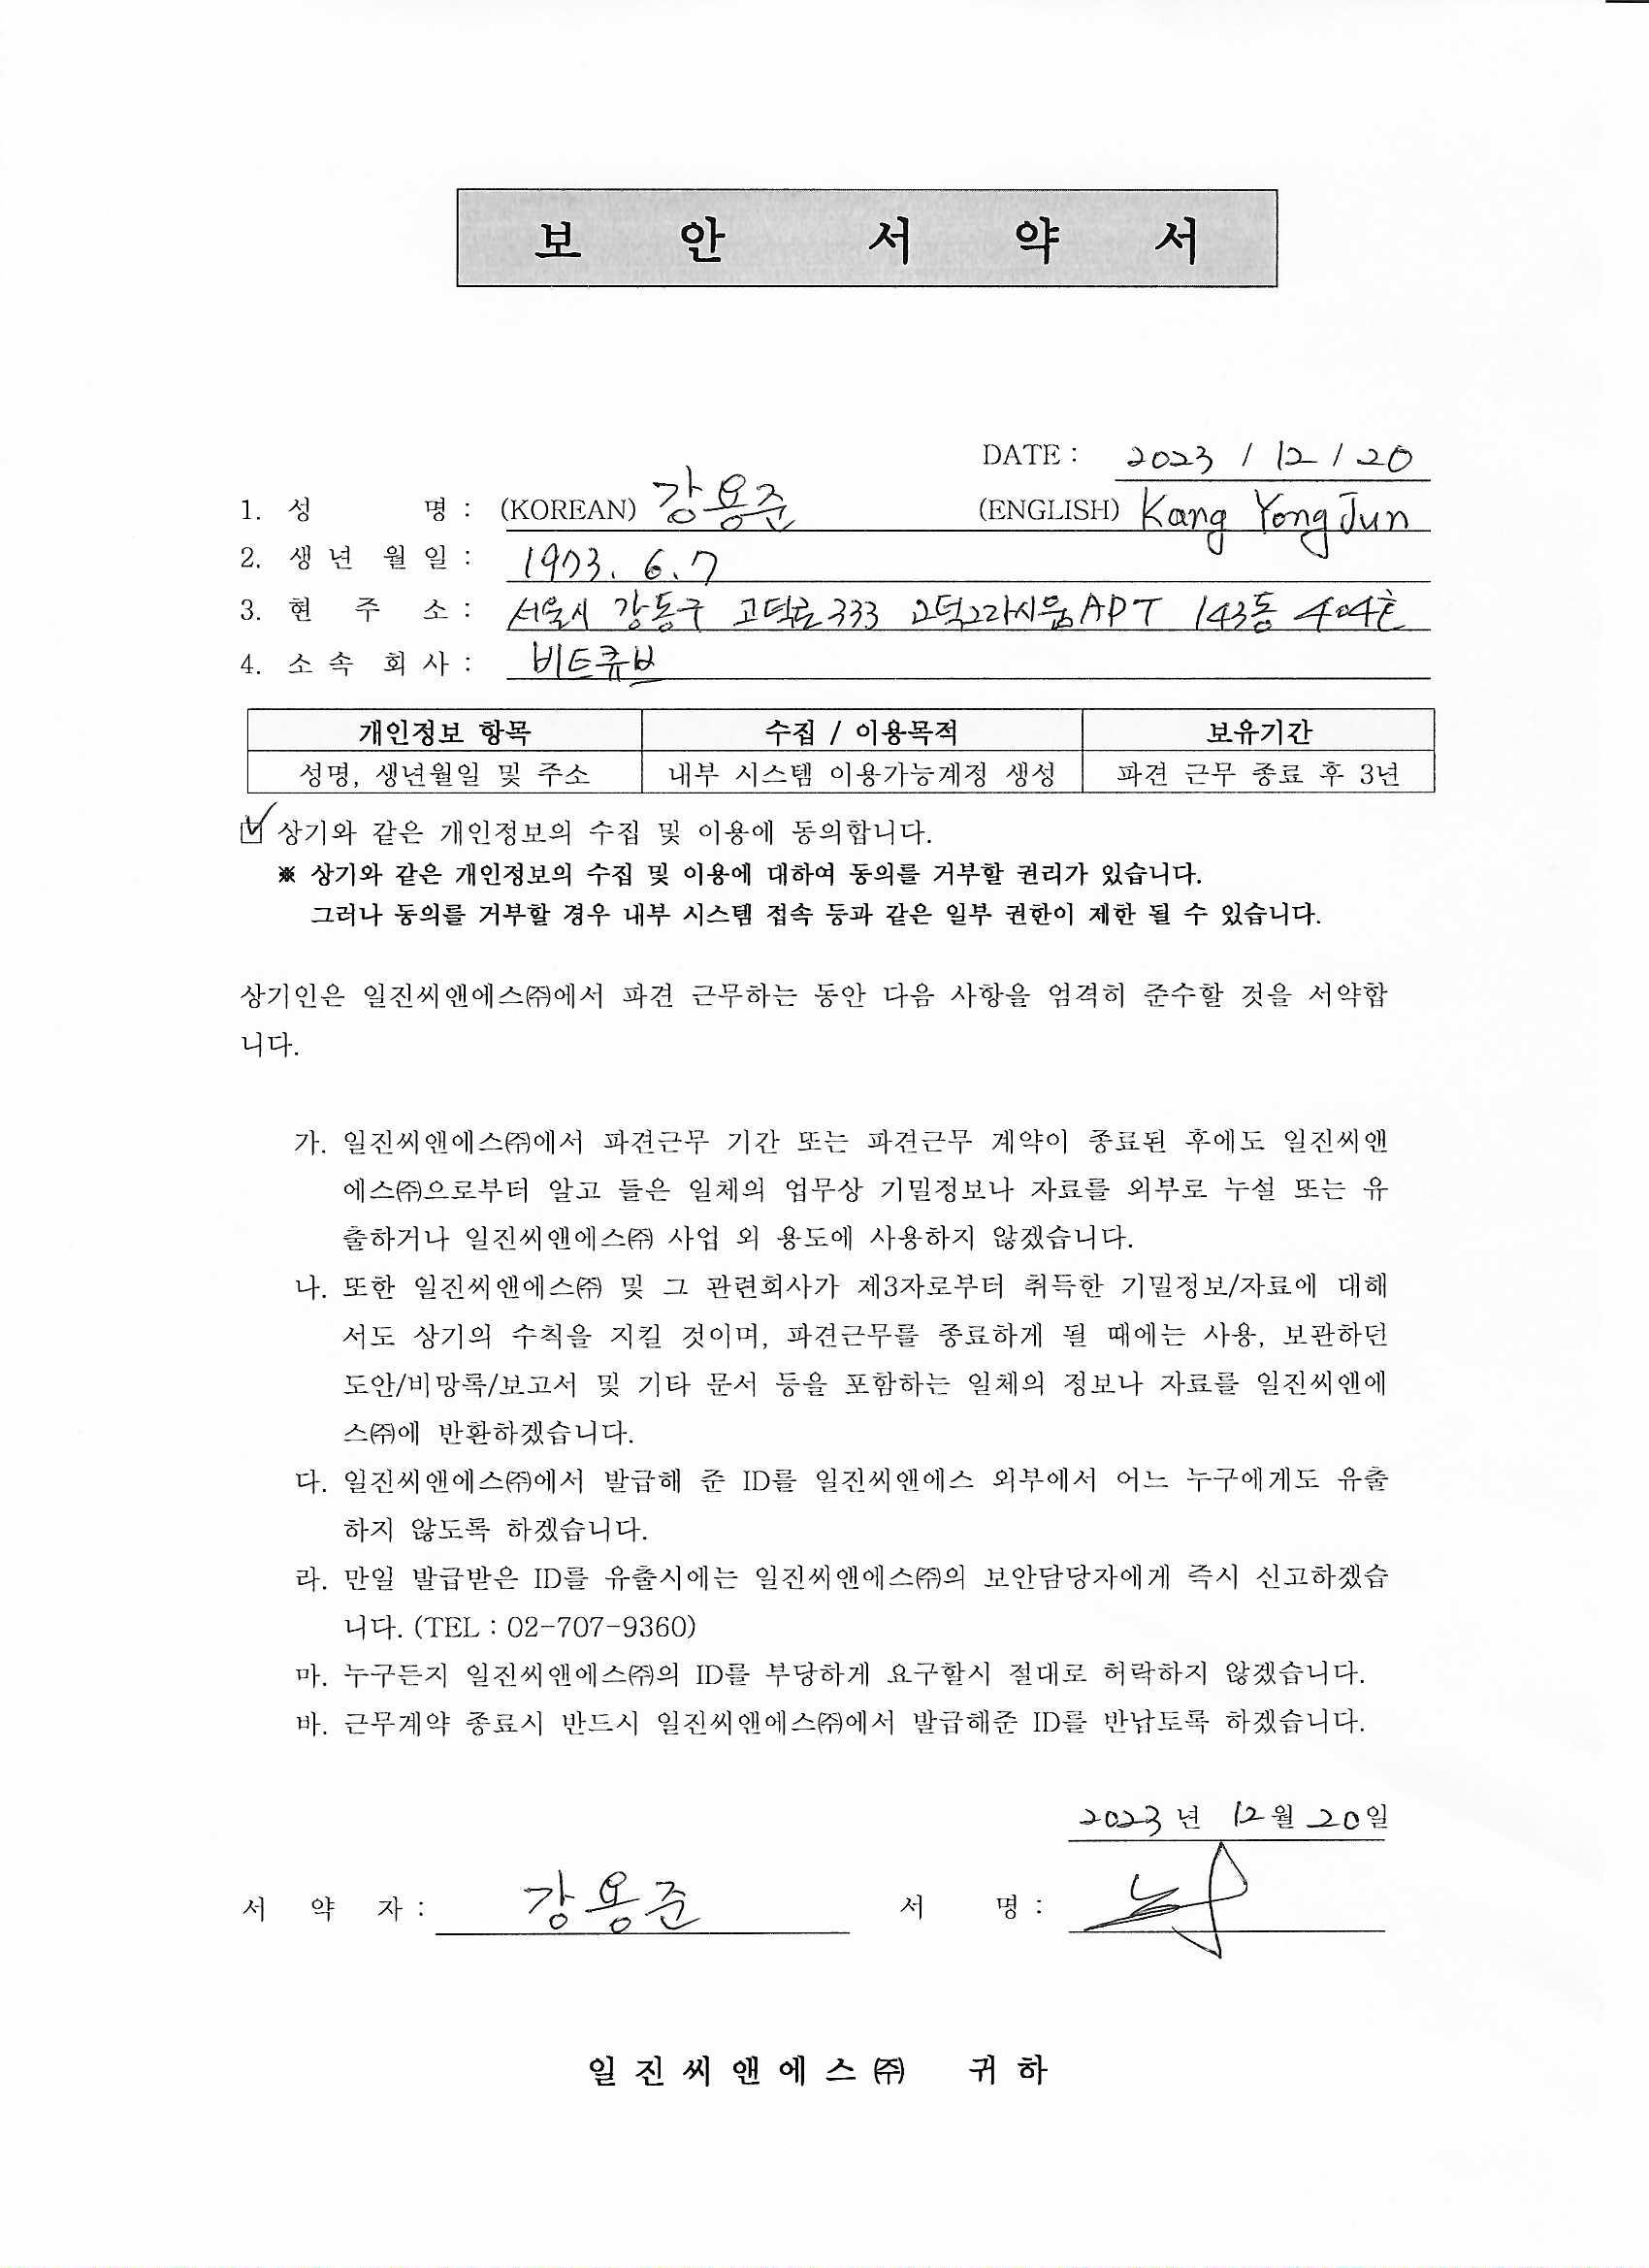 보 안 서 약 서
DATE : 2023 / 12 / 20
1. 성 명 : (KOREAN) 강용준 (ENGLISH) Kang Yong Jun
2. 생 년 월 일 : 1973. 6. 7
3. 현 주 소 : 서울시 강동구 고덕로 333 고덕그라시움 APT 143동 404호
4. 소 속 회 사 : 비트큐브
개인정보 항목 수집 / 이용목적 보유기간
성명, 생년월일 및 주소 내부 시스템 이용가능계정 생성 파견 근무 종료 후 3년
☑ 상기와 같은 개인정보의 수집 및 이용에 동의합니다.
※ 상기와 같은 개인정보의 수집 및 이용에 대하여 동의를 거부할 권리가 있습니다.
그러나 동의를 거부할 경우 내부 시스템 접속 등과 같은 일부 권한이 제한 될 수 있습니다.
상기인은 일진씨앤에스㈜에서 파견 근무하는 동안 다음 사항을 엄격히 준수할 것을 서약합
니다.
가. 일진씨앤에스㈜에서 파견근무 기간 또는 파견근무 계약이 종료된 후에도 일진씨앤
에스㈜으로부터 알고 들은 일체의 업무상 기밀정보나 자료를 외부로 누설 또는 유
출하거나 일진씨앤에스㈜ 사업 외 용도에 사용하지 않겠습니다.
나. 또한 일진씨앤에스㈜ 및 그 관련회사가 제3자로부터 취득한 기밀정보/자료에 대해
서도 상기의 수칙을 지킬 것이며, 파견근무를 종료하게 될 때에는 사용, 보관하던
도안/비망록/보고서 및 기타 문서 등을 포함하는 일체의 정보나 자료를 일진씨앤에
스㈜에 반환하겠습니다.
다. 일진씨앤에스㈜에서 발급해 준 ID를 일진씨앤에스 외부에서 어느 누구에게도 유출
하지 않도록 하겠습니다.
라. 만일 발급받은 ID를 유출시에는 일진씨앤에스㈜의 보안담당자에게 즉시 신고하겠습
니다. (TEL : 02-707-9360)
마. 누구든지 일진씨앤에스㈜의 ID를 부당하게 요구할시 절대로 허락하지 않겠습니다.
바. 근무계약 종료시 반드시 일진씨앤에스㈜에서 발급해준 ID를 반납토록 하겠습니다.
2023 년 12 월 20 일
서 약 자 : 강용준 서 명 :
일 진 씨 앤 에 스 ㈜ 귀 하